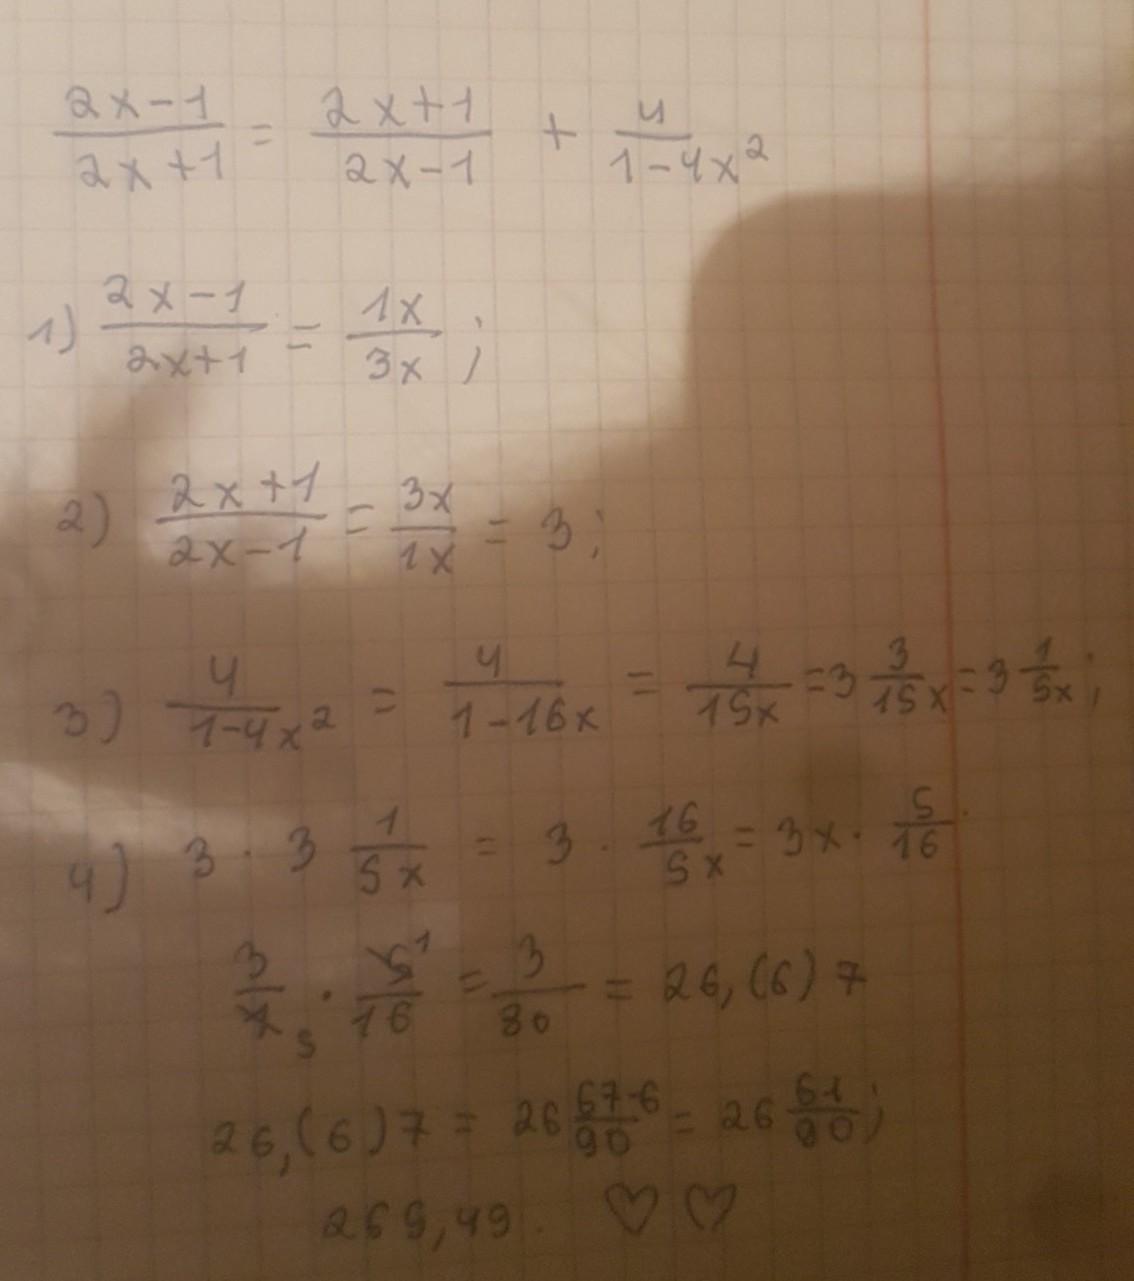 (2x-1)/(2x+1) = (2x+1)/(2x-1) + 4/(1-4x²)
1) (2x-1)/(2x+1) = 1x/3x ;
2) (2x+1)/(2x-1) = 3x/1x = 3;
3) 4/(1-4x²) = 4/(1-16x) = 4/15x = 3 3/15x = 3 1/5x ;
4) 3 · 3 1/5x = 3 · 16/5x = 3x · 5/16
3/x 5 · 5 1/16 = 3/80 = 26,(6)7
26,(6)7 = 26 67-6/90 = 26 61/90 ;
269,49. ♡ ♡